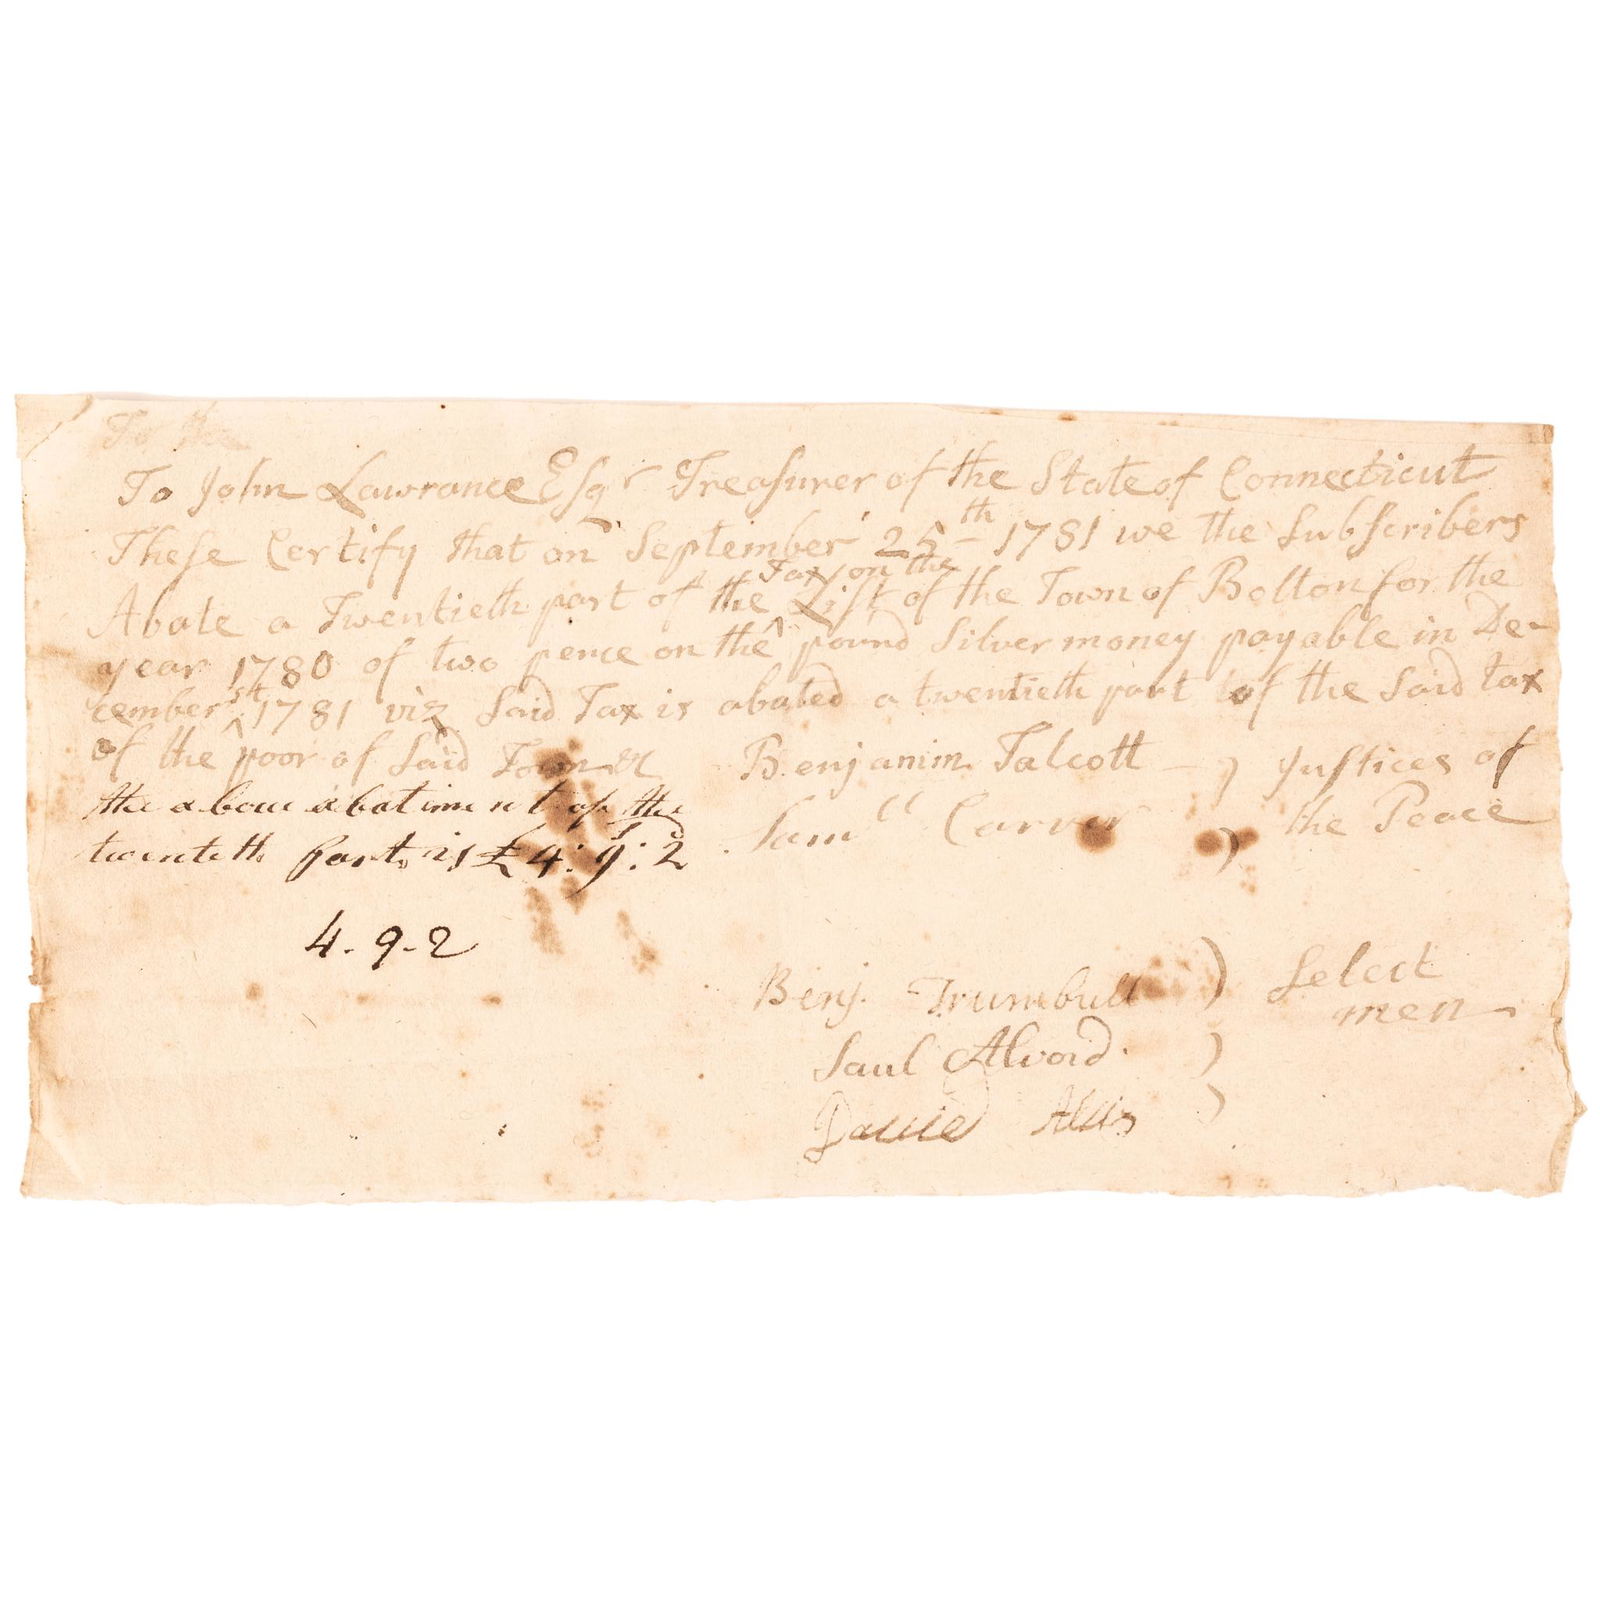 To the
To John Lawrance Esqr Treasurer of the State of Connecticut
These Certify that on September 25th 1781 we the Subscribers
Tax on the
Abate a Twentieth part of the List of the Town of Bolton for the
year 1780 of two pence on the ^ pound Silver money payable in De-
cember st ^ 1781 viz Said Tax is abated a twentieth part of the Said tax
of the poor of Said Town
the aboue abatiment of the
twenteth Part is £4:9:2
4-9-2
Benjamin Talcott ) Justices of
Samll Carver ) the Peace
Benj. Trumbull ) Select
men
Saul Alvord )
Dauied Allis )